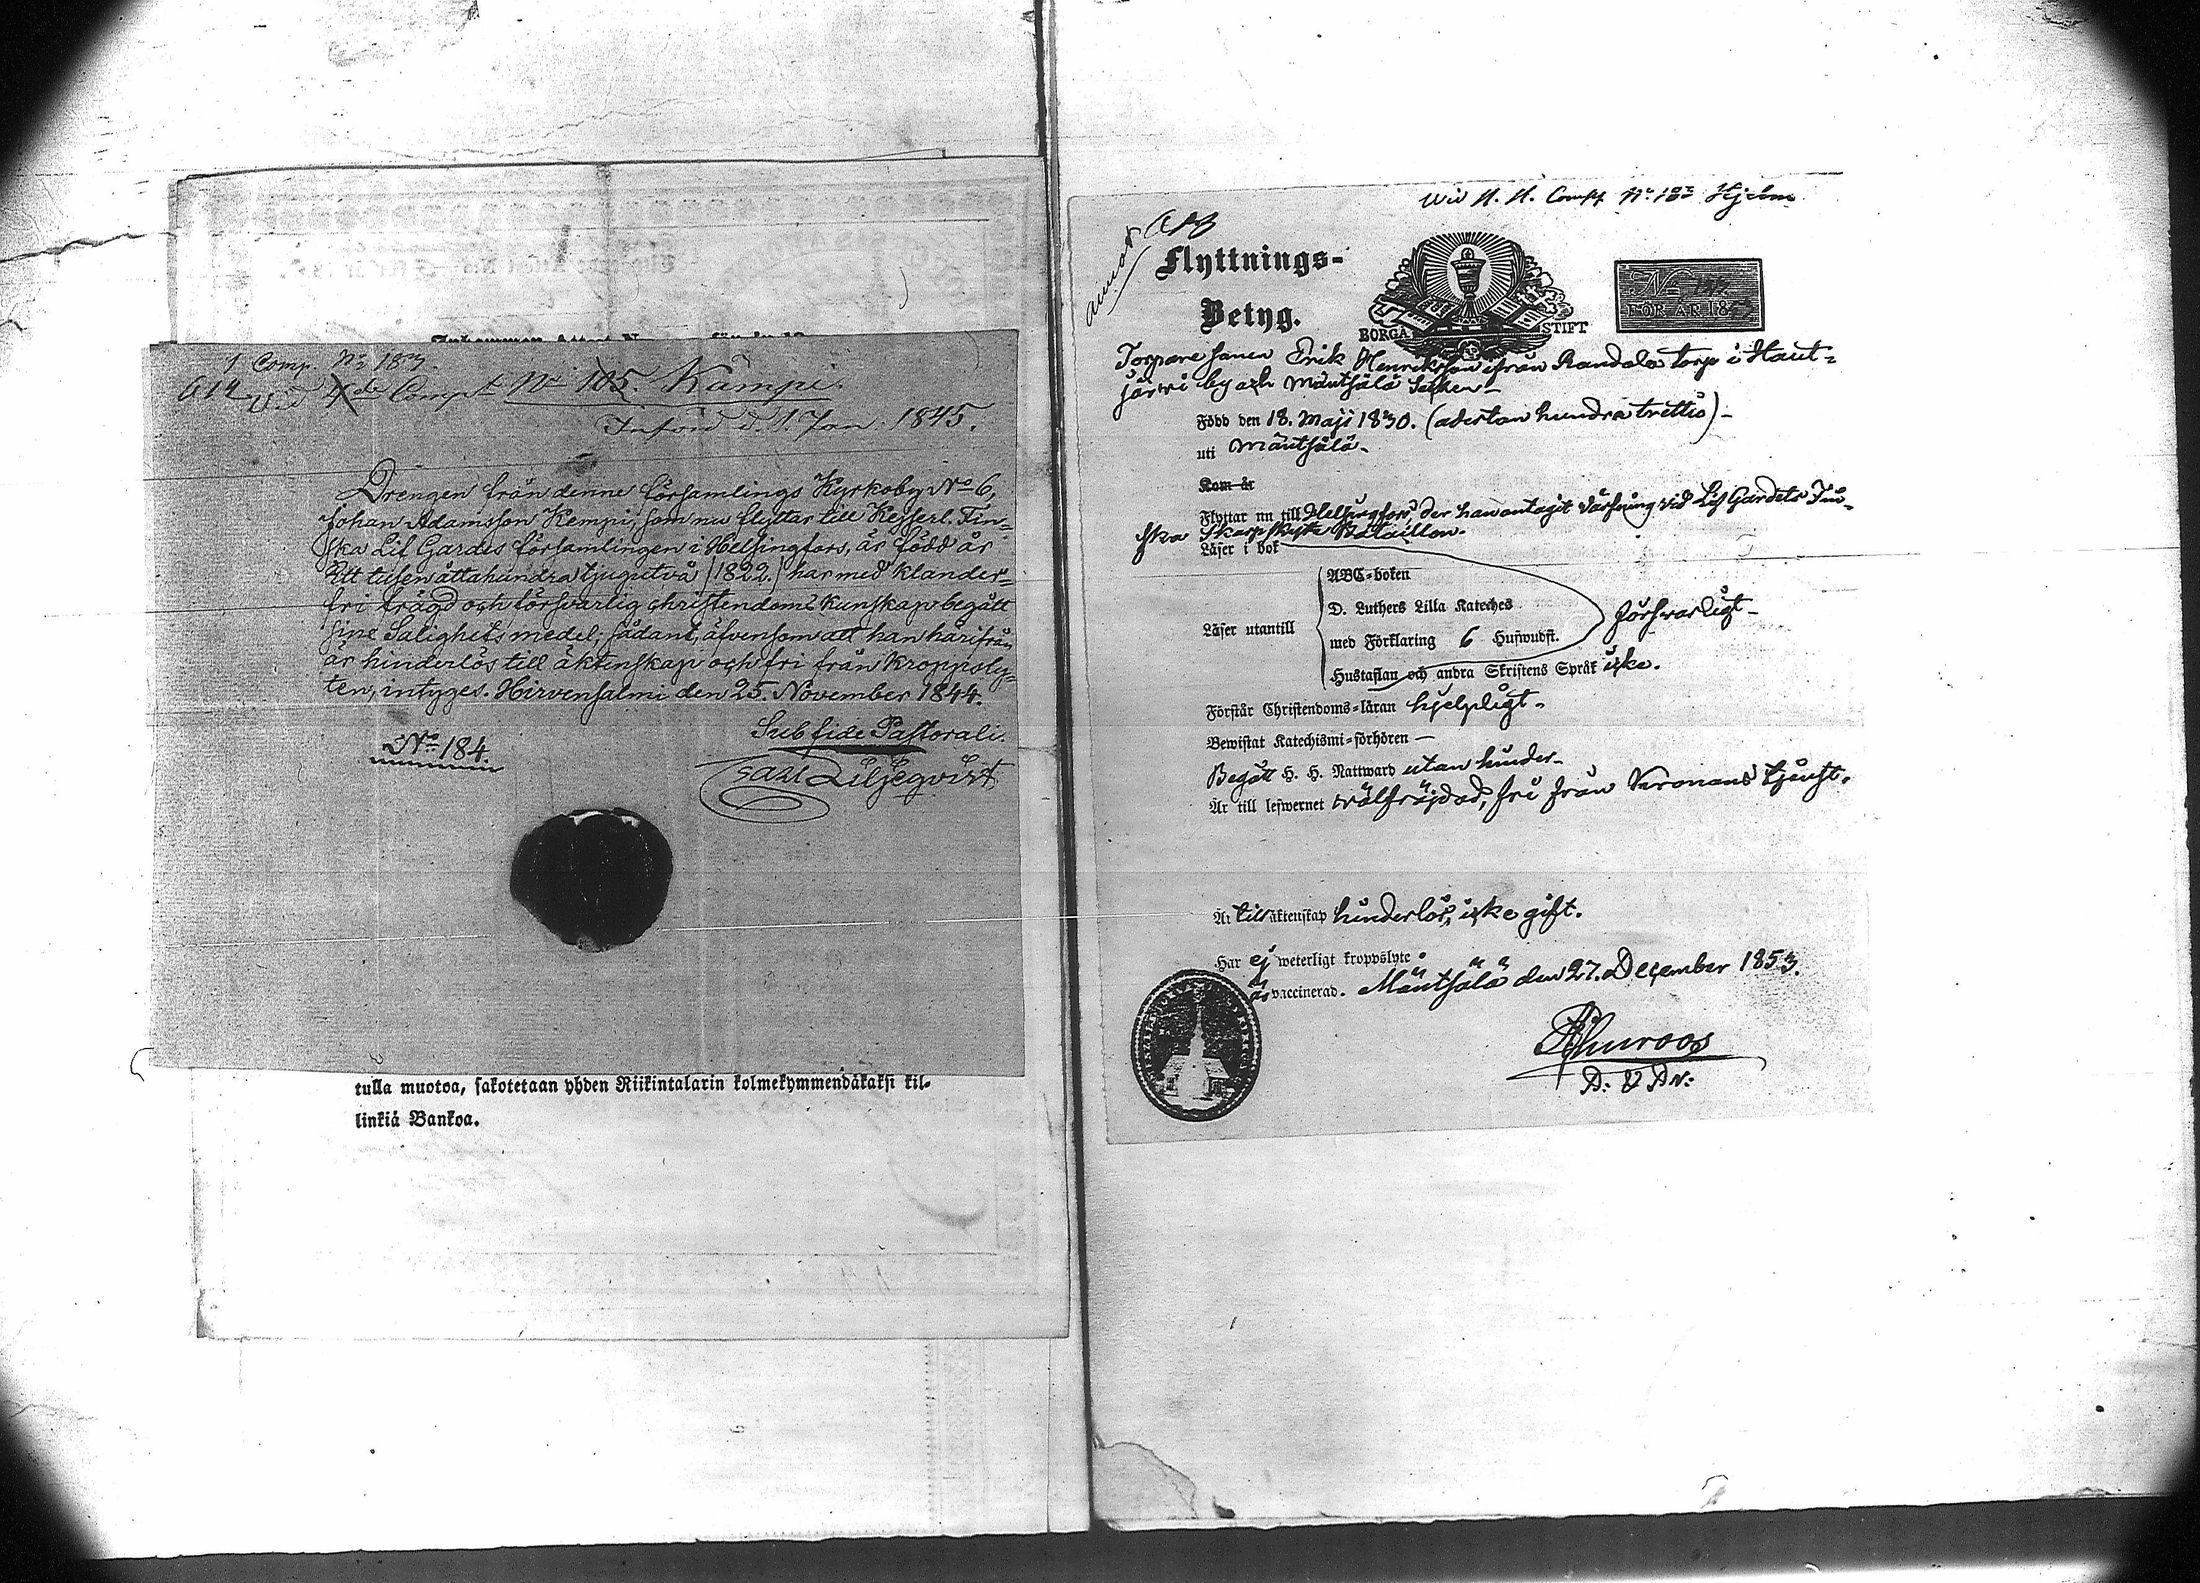 1 Comp. No 183.
614 Vid Comp. No 105. Kämpi.
Införd d. 1 Jan. 1845.
Drengen från denne Församlings Kyrkoby No 6,
Johan Adamsson Kempi, som nu flyttar till Kejserl. Fin-
ska Lif Gardes församlingen i Helsingfors, är född år
Ett tusen åttahundra tjugutvå (1822.) har med klander-
fri frägd och försvarlig christendoms kunskap begått
sine Salighets medel; sådant, äfvensom att han härifrån
är hinderlös till äktenskap och fri från kroppsly-
ten, intyges. Hirvensalmi den 25. November 1844.
Sub fide Pastorali.
No 184.
Carl Liljeqvist
tulla muotoa, sakotetaan yhden Riikintalarin kolmekymmendäkaksi kil-
linkiä Bankoa.
Wid Comp No 183 Hjelm
Flyttnings-
Betyg.
BORGÅ STIFT
No
FÖR ÅR 18
Torpare sonen Erik Henriksson ifrån Randala torp i Haut-
järwi by och Mäntsälä Socken
Född den 18. Maji 1830. (aderton hundra trettio)
uti Mäntsälä.
Kom år
Flyttar nu till Helsingfors der han antagit värfning vid Lif Gardets Fin-
ska Skarpskytte Bataillon.
Läser i bok
ABC-boken
D. Luthers Lilla Kateches försvarligt
Läser utantill
med Förklaring 6 Hufwudst.
Hustaflan och andra Skriftens Språk icke.
Förstår Christendoms-läran hjelpligt
Bewistat Katechismi-förhören
Begått H. H. Nattward utan hinder
Är till lefwernet välfräjdad, fri från Kronans tjenst.
Är till äktenskap hinderlös, icke gift.
Har ej weterligt kroppslyte.
är vaccinerad. Mäntsälä den 27. December 1853.